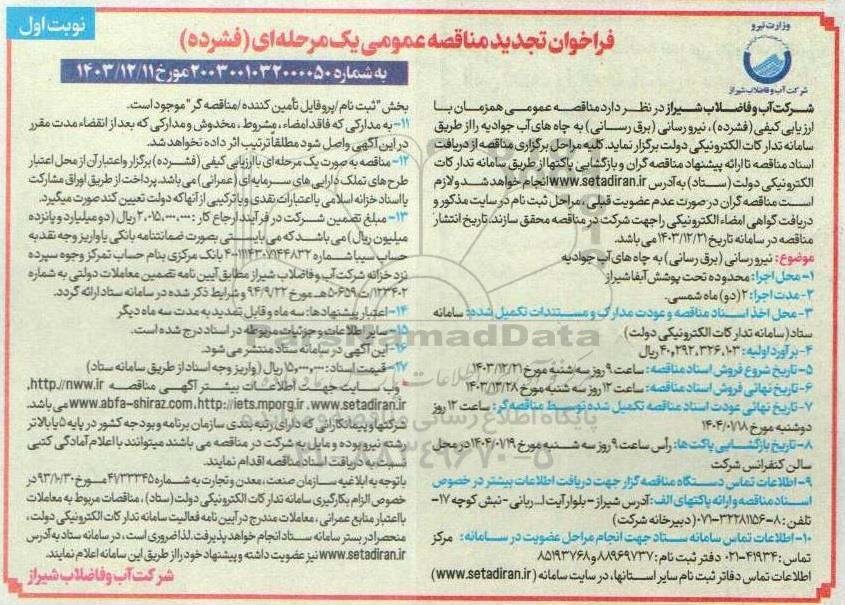 نوبت اول
وزارت نیرو
شرکت آب و فاضلاب شیراز
فراخوان تجدید مناقصه عمومی یک مرحله‌ای (فشرده)
به شماره ۲۰۰۳۰۰۱۰۳۲۰۰۰۰۵۰ مورخ ۱۴۰۳/۱۲/۱۱
شرکت آب و فاضلاب شیراز در نظر دارد مناقصه عمومی همزمان با
ارزیابی کیفی (فشرده)، نیرو رسانی (برق رسانی) به چاه های آب جوادیه را از طریق
سامانه تدارکات الکترونیکی دولت برگزار نماید. کلیه مراحل برگزاری مناقصه از دریافت
اسناد مناقصه تا ارائه پیشنهاد مناقصه گران و بازگشایی پاکتها از طریق سامانه تدارکات
الکترونیکی دولت (ستاد) به آدرس www.setadiran.ir انجام خواهد شد و لازم
است مناقصه گران در صورت عدم عضویت قبلی، مراحل ثبت نام در سایت مذکور و
دریافت گواهی امضاء الکترونیکی را جهت شرکت در مناقصه محقق سازند. تاریخ انتشار
مناقصه در سامانه تاریخ ۱۴۰۳/۱۲/۲۱ می باشد.
موضوع: نیرو رسانی (برق رسانی) به چاه های آب جوادیه
۱- محل اجرا: محدوده تحت پوشش آبفا شیراز
۲- مدت اجرا: ۲ (دو) ماه شمسی.
۳- محل اخذ اسناد مناقصه و عودت مدارک و مستندات تکمیل شده: سامانه
ستاد (سامانه تدارکات الکترونیکی دولت)
۴- برآورد اولیه: ۴۰,۲۹۲,۳۲۶,۱۰۳ ریال
۵- تاریخ شروع فروش اسناد مناقصه: ساعت ۹ روز سه شنبه مورخ ۱۴۰۳/۱۲/۲۱
۶- تاریخ نهائی فروش اسناد مناقصه: ساعت ۱۲ روز سه شنبه مورخ ۱۴۰۳/۱۲/۲۸
۷- تاریخ نهائی عودت اسناد مناقصه تکمیل شده توسط مناقصه گر: ساعت ۱۲ روز
دوشنبه مورخ ۱۴۰۴/۰۱/۱۸
۸- تاریخ بازگشایی پاکت‌ها: رأس ساعت ۹ روز سه شنبه مورخ ۱۴۰۴/۰۱/۱۹ در محل
سالن کنفرانس شرکت
۹- اطلاعات تماس دستگاه مناقصه گزار جهت دریافت اطلاعات بیشتر در خصوص
اسناد مناقصه و ارائه پاکتهای الف: آدرس شیراز – بلوار آیت ا... ربانی – نبش کوچه ۱۷-
تلفن: ۸-۳۲۲۸۱۱۵۶-۰۷۱ (دبیرخانه شرکت)
۱۰- اطلاعات تماس سامانه ستاد جهت انجام مراحل عضویت در سامانه: مرکز
تماس: ۴۱۹۳۴-۰۲۱ دفتر ثبت نام: ۸۸۹۶۹۷۳۷ و ۸۵۱۹۳۷۶۸
اطلاعات تماس دفاتر ثبت نام سایر استانها، در سایت سامانه (www.setadiran.ir)
بخش "ثبت نام / پروفایل تأمین کننده / مناقصه گر" موجود است.
۱۱- به مدارکی که فاقد امضاء، مشروط، مخدوش و مدارکی که بعد از انقضاء مدت مقرر
در این آگهی واصل شود مطلقاً ترتیب اثر داده نخواهد شد.
۱۲- مناقصه به صورت یک مرحله ای با ارزیابی کیفی (فشرده) برگزار و اعتبار آن از محل اعتبار
طرح های تملک دارایی های سرمایه ای (عمرانی) می باشد. پرداخت از طریق اوراق مشارکت
یا اسناد خزانه اسلامی یا اعتبارات نقدی و یا ترکیبی از آنها که دولت تعیین کند صورت میگیرد.
۱۳- مبلغ تضمین شرکت در فرآیند ارجاع کار: ۲,۰۱۵,۰۰۰,۰۰۰ ریال (دو میلیارد و پانزده
میلیون ریال) می باشد که می بایستی بصورت ضمانتنامه بانکی یا واریز وجه نقد به
حساب سیبا شماره ۴۰۰۱۱۱۴۳۰۷۱۴۴۸۳۲ بانک مرکزی بنام حساب تمرکز وجوه سپرده
نزد خزانه شرکت آب و فاضلاب شیراز مطابق آیین نامه تضمین معاملات دولتی به شماره
۱۲۳۴۰۲/ت۵۰۶۵۹هـ مورخ ۹۴/۹/۲۲ و شرایط ذکر شده در سامانه ستاد ارائه گردد.
۱۴- اعتبار پیشنهادها: سه ماه و قابل تمدید به مدت سه ماه دیگر
۱۵- سایر اطلاعات و جزئیات مربوطه در اسناد درج شده است.
۱۶- این آگهی در سامانه ستاد منتشر می شود.
۱۷- قیمت اسناد: ۱۵,۰۰۰,۰۰۰ ریال (واریز وجه اسناد از طریق سامانه ستاد)
وب سایت جهت اطلاعات بیشتر آگهی مناقصه http://nww.ir,
www.abfa-shiraz.com, http://iets.mporg.ir, www.setadiran.ir می باشد.
شرکتها و پیمانکارانی که دارای رتبه بندی سازمان برنامه و بودجه کشور در پایه ۵ یا بالاتر
رشته نیرو بوده و مایل به شرکت در مناقصه می باشند میتوانند با اعلام آمادگی کتبی
نسبت به دریافت اسناد مناقصه اقدام نمایند.
با توجه به ابلاغیه سازمان صنعت، معدن و تجارت به شماره ۴۷۳۳۳۴۵ مورخ ۹۳/۱۰/۳۰ در
خصوص الزام بکارگیری سامانه تدارکات الکترونیکی دولت (ستاد)، مناقصات مربوط به معاملات
با اعتبار منابع عمرانی، معاملات مندرج در آیین نامه فعالیت سامانه تدارکات الکترونیکی دولت،
منحصراً در بستر سامانه ستاد انجام خواهد پذیرفت. لذا ضروری است، در سامانه ستاد به آدرس
www.setadiran.ir نیز عضویت داشته و پیشنهاد خود را از طریق این سامانه اعلام نمایند.
شرکت آب و فاضلاب شیراز
ParsNamadData
پایگاه اطلاع رسانی
۰۲۱-۸۸۳۴۹۶۷۰-۵